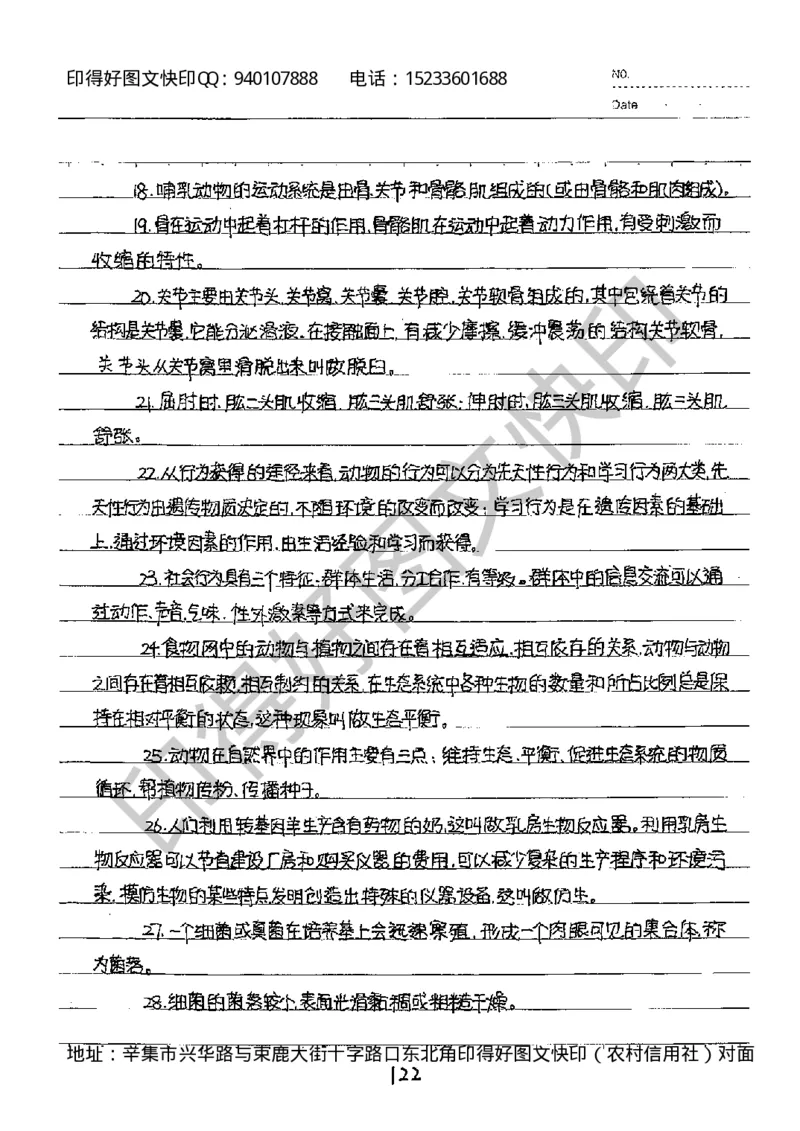 印得好图文快印QQ：940107888 电话：15233601688
NO.
Date
18.哺乳动物的运动系统是由骨、关节和骨骼肌组成的(或由骨骼和肌肉组成)。
19.骨在运动中起着杠杆的作用,骨骼肌在运动中起着动力作用,有受刺激而
收缩的特性。
20.关节主要由关节头、关节窝、关节囊、关节腔、关节软骨组成的,其中包绕着关节的
结构是关节囊,它能分泌滑液。在接触面上,有减少摩擦、缓冲震荡的结构关节软骨,
关节头从关节窝里滑脱出来叫做脱臼。
21.屈肘时,肱二头肌收缩,肱三头肌舒张;伸肘时,肱三头肌收缩,肱二头肌
舒张。
22.从行为获得的途径来看,动物的行为可以分为先天性行为和学习行为两大类,先
天性行为由遗传物质决定的,不随环境的改变而改变;学习行为是在遗传因素的基础
上,通过环境因素的作用,由生活经验和学习而获得。
23.社会行为具有三个特征:群体生活,分工合作,有等级。群体中的信息交流可以通
过动作、声音、气味、性外激素等方式来完成。
24.食物网中的动物与植物之间存在着相互适应、相互依存的关系,动物与动物
之间存在着相互依赖,相互制约的关系,在生态系统中各种生物的数量和所占比例总是保
持在相对平衡的状态,这种现象叫做生态平衡。
25.动物在自然界中的作用主要有三点:维持生态平衡、促进生态系统的物质
循环,帮植物传粉、传播种子。
26.人们利用转基因羊生产含有药物的奶,这叫做乳房生物反应器。利用乳房生
物反应器可以节省建设厂房和购买仪器的费用,可以减少复杂的生产程序和环境污
染,模仿生物的某些特点发明创造出特殊的仪器设备,这叫做仿生。
27.一个细菌或真菌在培养基上会迅速繁殖,形成一个肉眼可见的集合体,称
为菌落。
28.细菌的菌落较小,表面光滑黏稠或粗糙干燥。
印得好图文快印
地址：辛集市兴华路与束鹿大街十字路口东北角印得好图文快印（农村信用社）对面
122